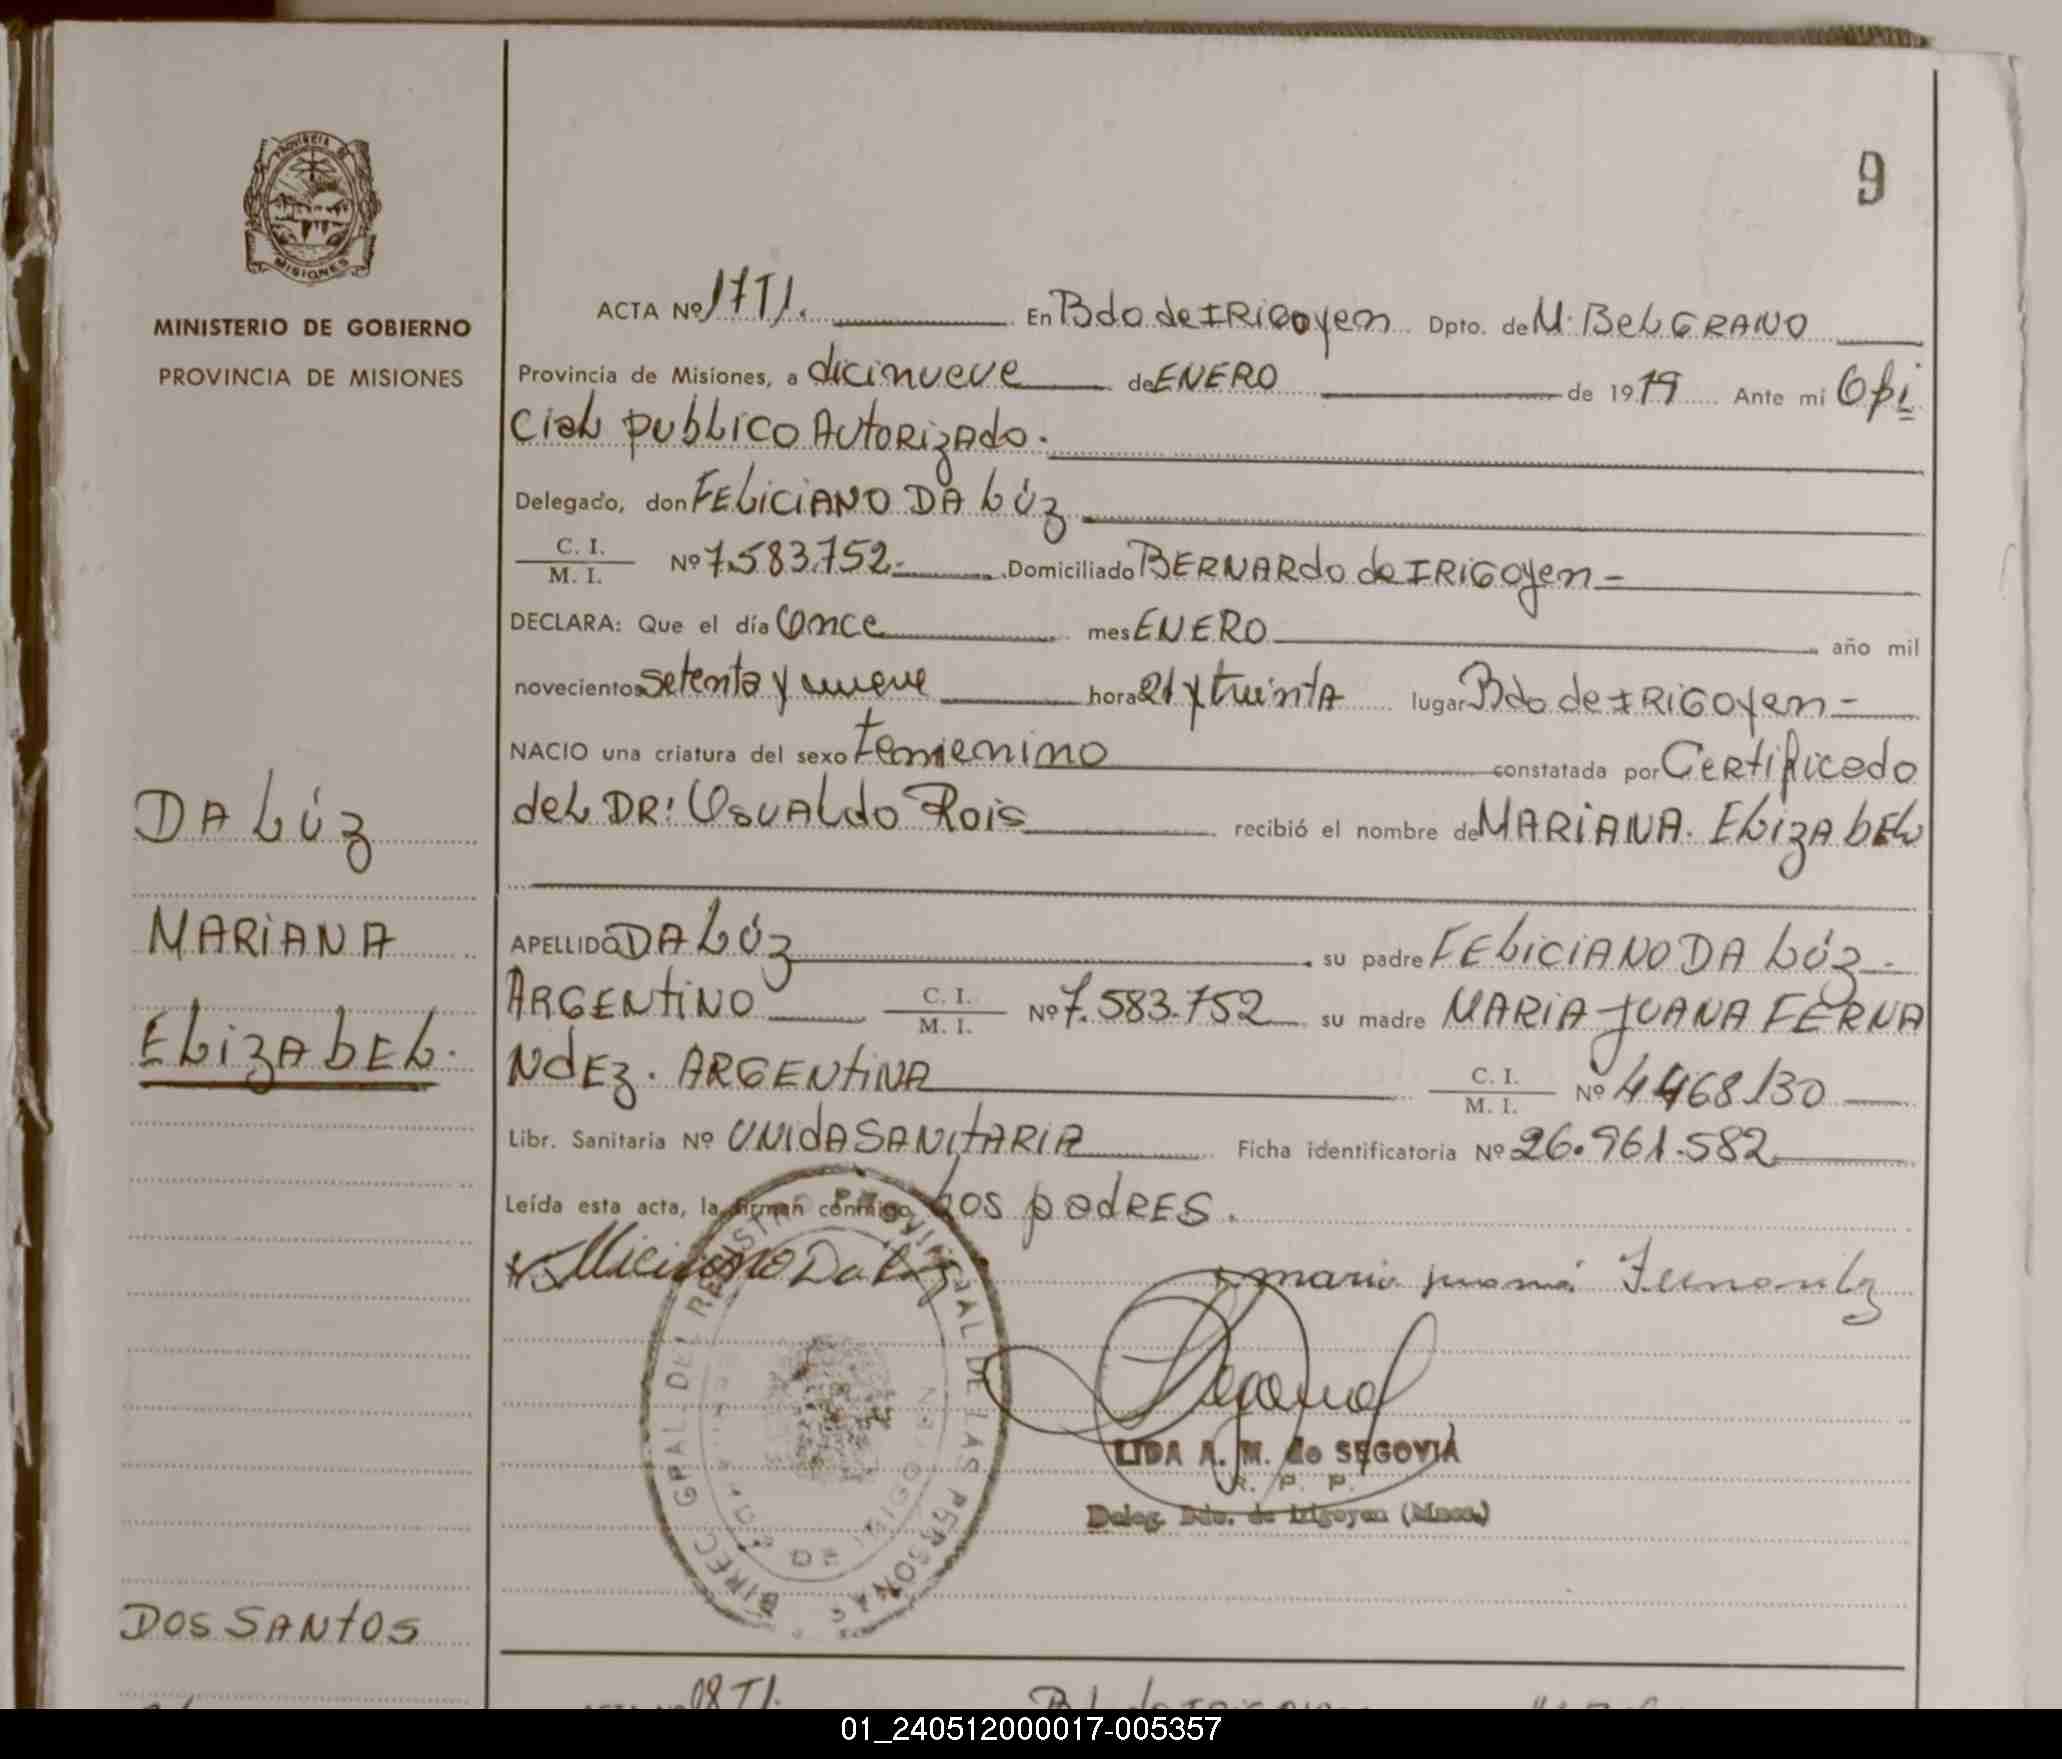 PROVINCIA DE
MISIONES
MINISTERIO DE GOBIERNO
PROVINCIA DE MISIONES
DA LÚZ
MARIANA
ELizABEL.
DOS SANTOS
9
ACTA Nº 17 TI. En Bdo de IRIGOyen Dpto. de M. BELGRANO
Provincia de Misiones, a dicinueve de ENERO de 1979 Ante mi Ofi
ciaL pubLico AutoRizAdo.
Delegado, don FELiCiANO DA LÚz
C. I. / M. I. Nº 7.583.752.- Domiciliado BERNARdo de IRiGOyen -
DECLARA: Que el día Once mes ENERO año mil
novecientos setenta y nueve hora 21 y treinta lugar Bdo de IRiGOyen -
NACIO una criatura del sexo Femienino constatada por CeRtificado
deL DR: OsvALdo Rois recibió el nombre de MARiANA. ELizAbEL
APELLIDO DA LÚz su padre FELiCiANO DA LÚz -
ARGENtiNO C. I. / M. I. Nº 7.583.752 su madre MARiA JUANA FERNA
NdEz. ARGENtiNA C. I. / M. I. Nº 4468130
Libr. Sanitaria Nº UNIdASANitARIA Ficha identificatoria Nº 26.961.582
Leída esta acta, la firman conmigo Los padRES.
Da Luz
maria juana Fernandez
DIREC GRAL DEL REGISTRO PROVINCIAL DE LAS PERSONAS
LIDA A. M. de SEGOVIA
R. P. P.
Deleg. Bdo. de Irigoyen (Mnes.)
ACTA Nº 18 TI.
01_240512000017-005357